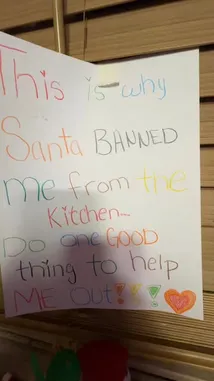 This is why
Santa BANNED
me from the
Kitchen...
Do one GOOD
thing to help
ME OUT!!!